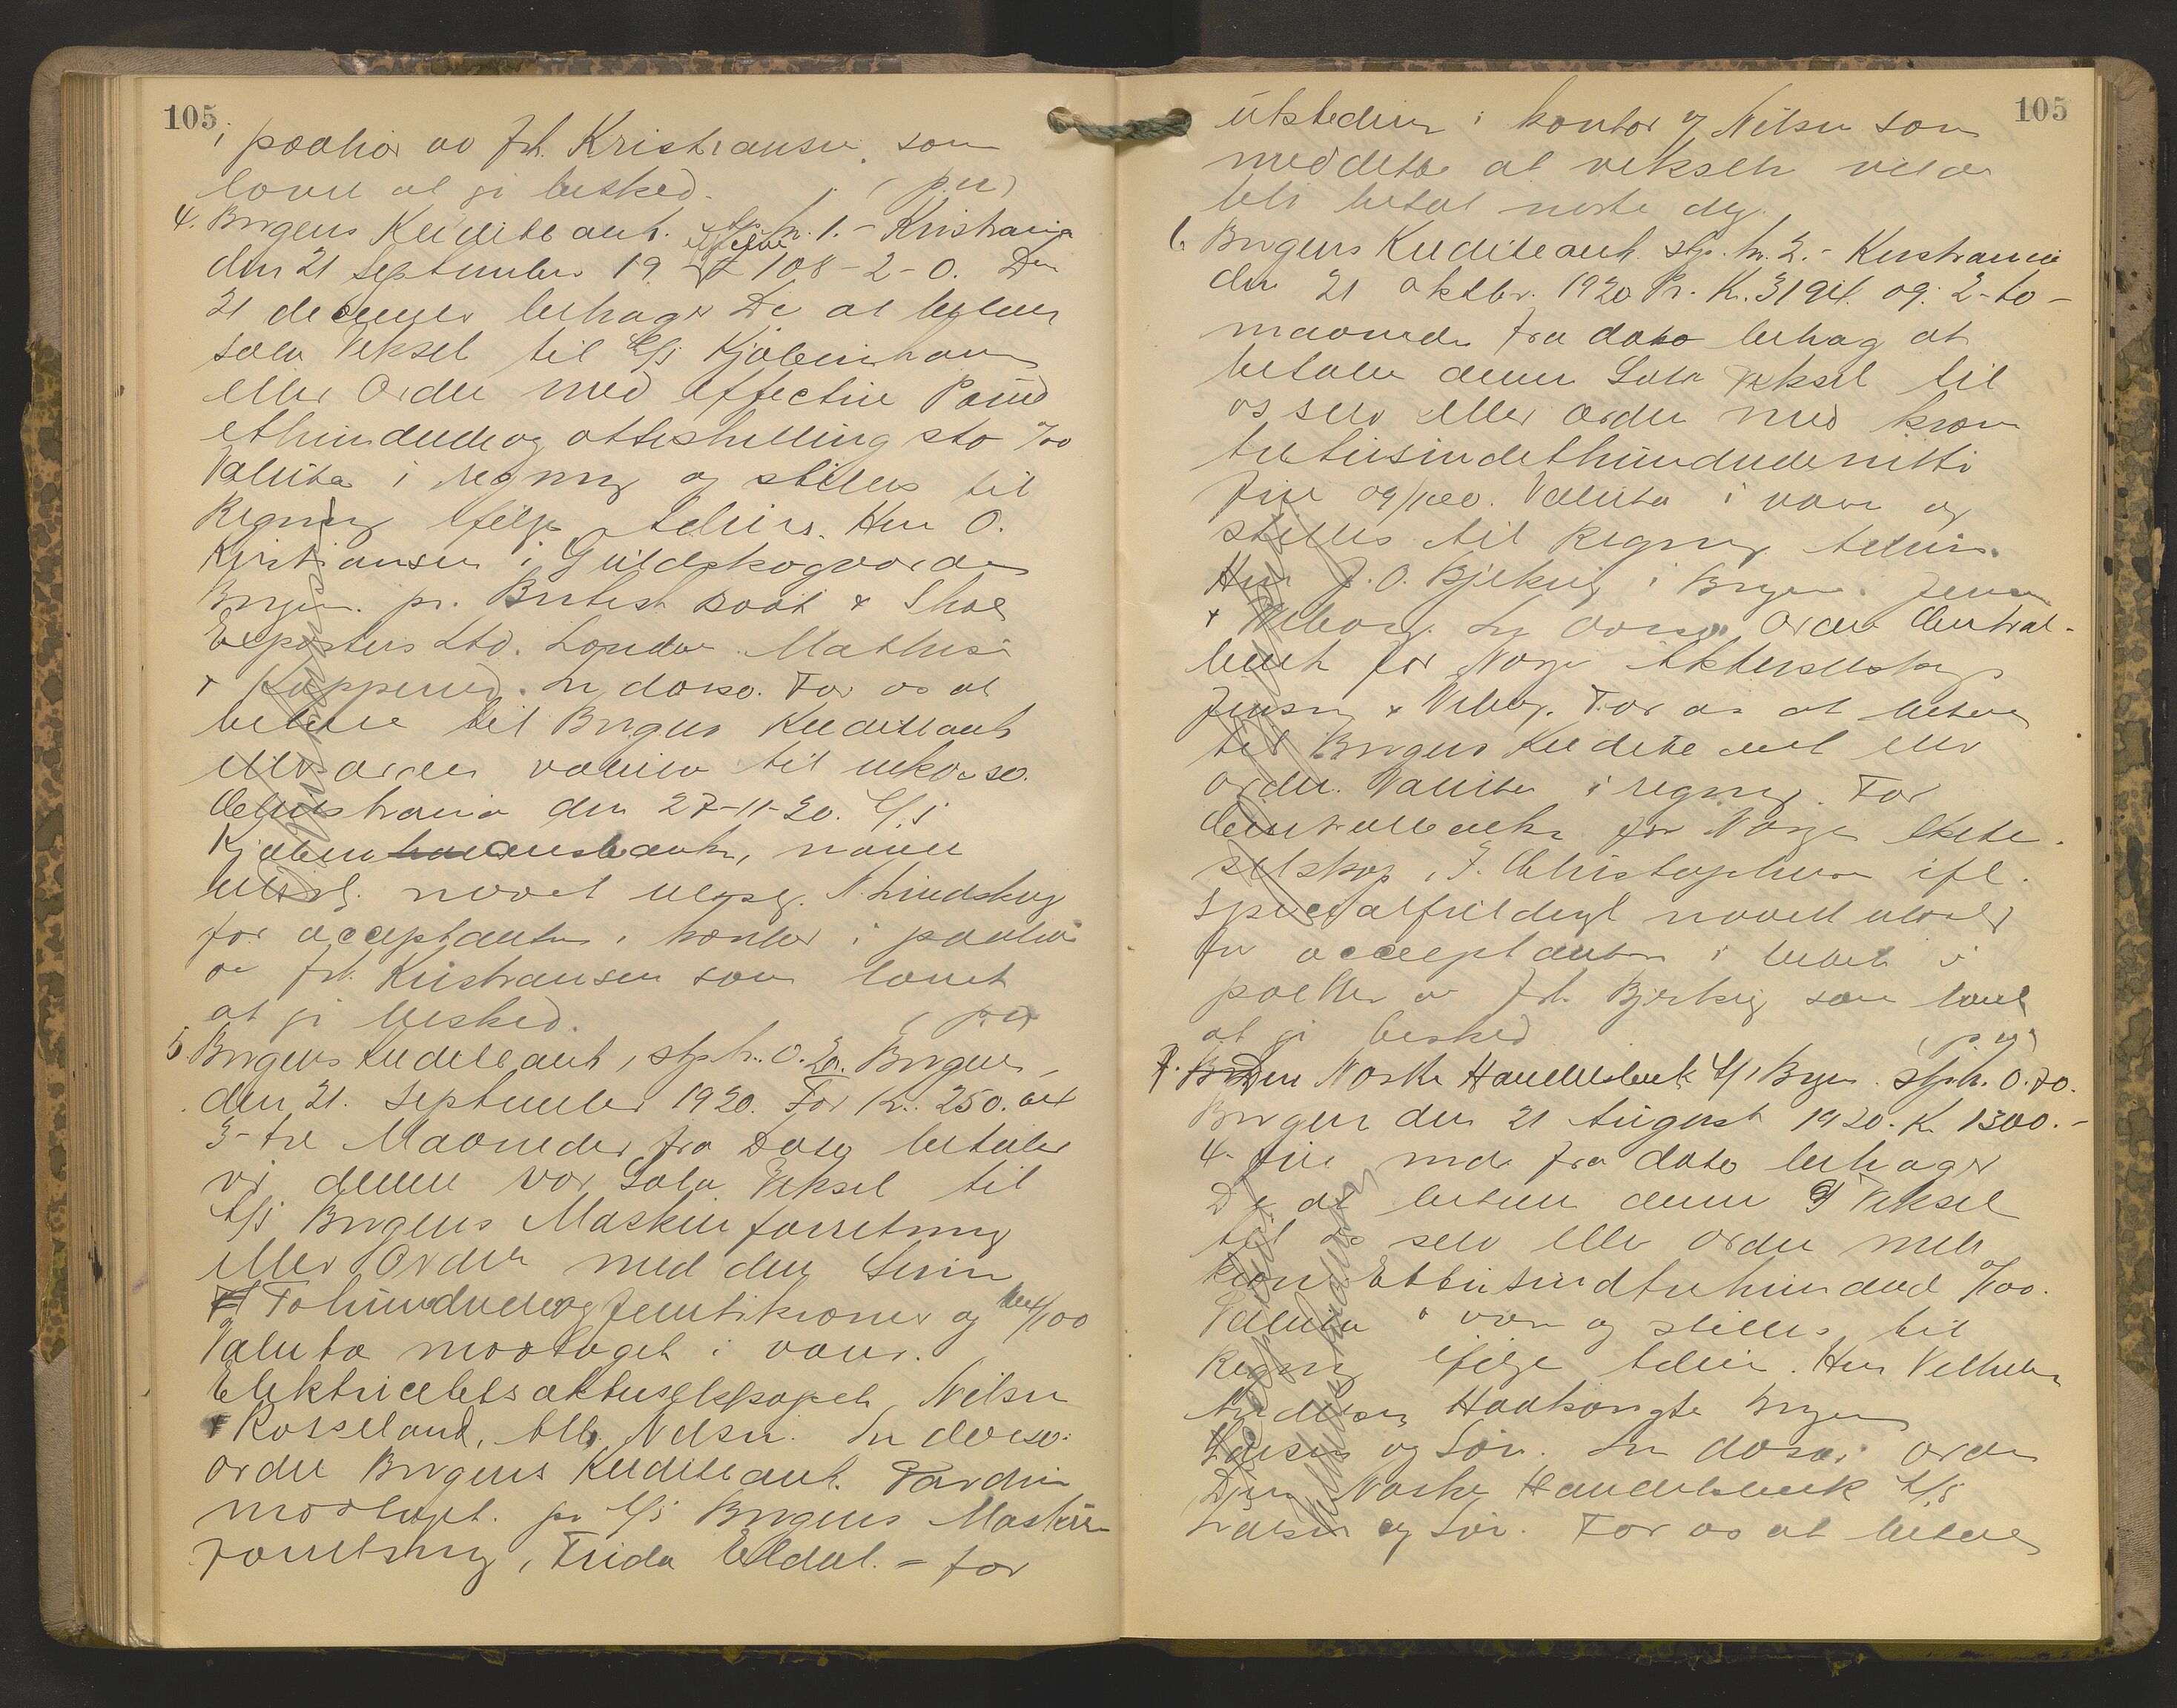 105
i paahør av frk. Kristiansen, som
lovet at gi besked. (p.u)
4. Bergens Kreditbank. stp. kr. 1.- Kristiania
den 21 september 19 £ 108-2-0. Den
21 december behager De at betale
sola Veksel til A/S Kjøbenhavn
eller Ordre med Effective Pund
ethundredeog otteshilling sto 0/00
Valuta i regning og stilles til
Regning ifølge advis. Herr O.
Kristiansen i Guldskoggaarden
Bergen. pr. British Boot & Shoe
Exporters Ltd. London Mathis
& In dorso. For os at
betale til Bergens Kreditbank
eller ordre valuta til inkasso.
Christiania den 27-11-20. A/S
Kjøbenhavensbank, navn
utvisl. navnet ulæsel. N. Lindskog
for acceptanten i kontor i paahør
av frk. Kristiansen som lovet
at gi besked. (p.u)
5. Bergens Kreditbank, stp. kr. 0.20. Bergen,
den 21. September 1920. For Kr. 250.
3-tre Maaneder fra Dato betaler
vi denne vor Sola Veksel til
A/S Bergens Maskinforretning
eller Ordre med den Sum
Tohundredeogfemtikroner og /100
Valuta mottaget i varer.
Elektricitetsaktieselskapet Nilsen
& Rosseland, Alb. Nilsen. In dorso:
ordre Bergens Kreditbank. Værdien
mottaget. pr A/S Bergens Maskin-
forretning, Frida Eldal. - for
105
utstederen i kontor og Nilsen som
meddelte at vekslen vilde
bli betal neste dag.
6. Bergens Kreditbank. stp. kr. 2.- Kristiania
den 21 oktbr. 1920 Pr. Kr. 3194. 09. 2-to-
maaneder fra dato behag at
betale denne Sola Veksel til
os selv eller ordre med kroner
tretusindethundredenitti
fire 09/100. Valuta i varer og
stilles til Regning advis.
Herr J. O. Bjerkvig i Bergen. Jensen
& Viborg. In dorso Ordre Central-
bank for Norge Aktieselskap
Jensen & Viborg. For os at betale
til Bergens Kreditbank eller
ordre. Valuta i regning. For
Centralbanken for Norge Aktie
selskap, J. Christophersen ifl.
Specialfuldmgt navnet utvisl
for acceptanten i butik i
paahør av frk. Bjerkvig som lovet
at gi besked (p. u)
7. Den Norske Handelsbank A/S Bergen. stp. kr. 0.70.
Bergen den 21 August 1920. Kr 1300.-
4- fire mdr fra dato behager
De at betale denne Veksel
til os selv eller ordre med
kroner Ettusindtrehundred 0/100.
Valuta i varer og stilles til
Regning ifølge advis. Herr Vilhelm
Andersen Haakonsgte Bergen
Larsen og Søn. In dorso: ordre
Den Norske Handelsbank A/S
Larsen og Søn. For os at betale